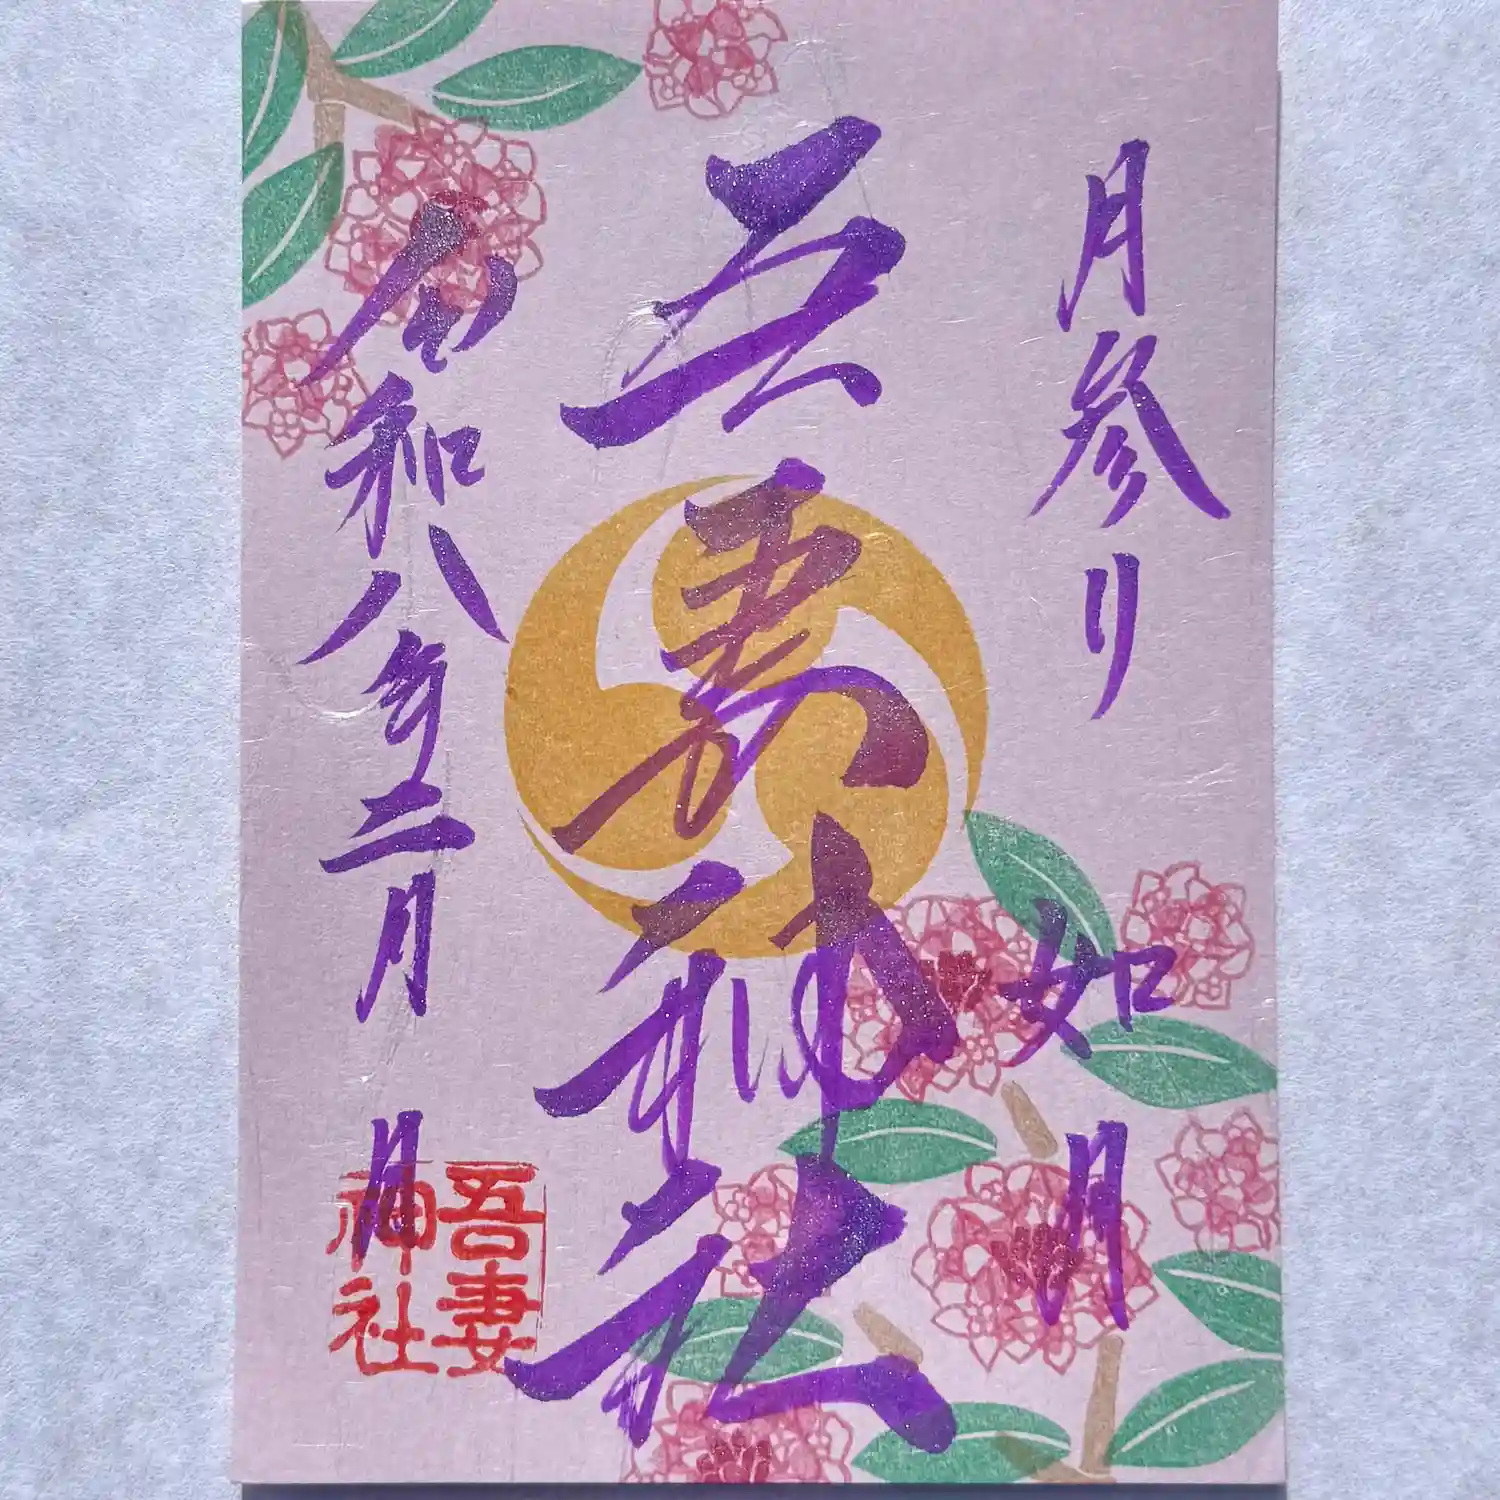 月参り
如月
吾妻神社
令和八年二月 月
吾妻
神社